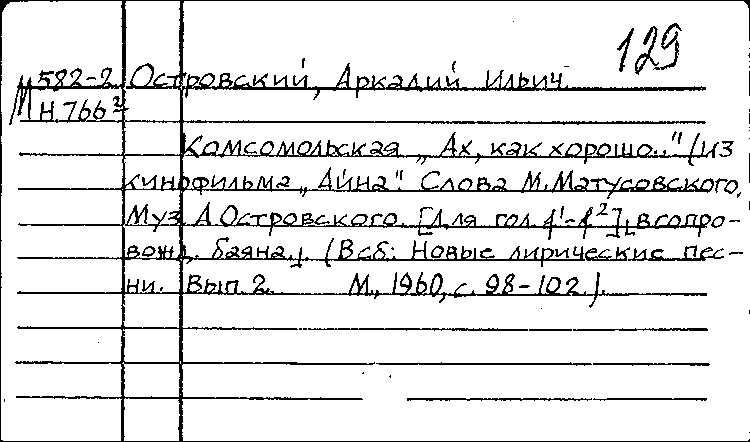 129
М 582-2 Островский, Аркадий Ильич.
Н.766²
Комсомольская „Ах, как хорошо.." (из
кинофильма „Айна". Слова М. Матусовского.
Муз. А. Островского. [Для гол. f¹-f²], [в сопро-
вожд. баяна.]. (В сб: Новые лирические пес-
ни. Вып. 2. М., 1960, с. 98-102).